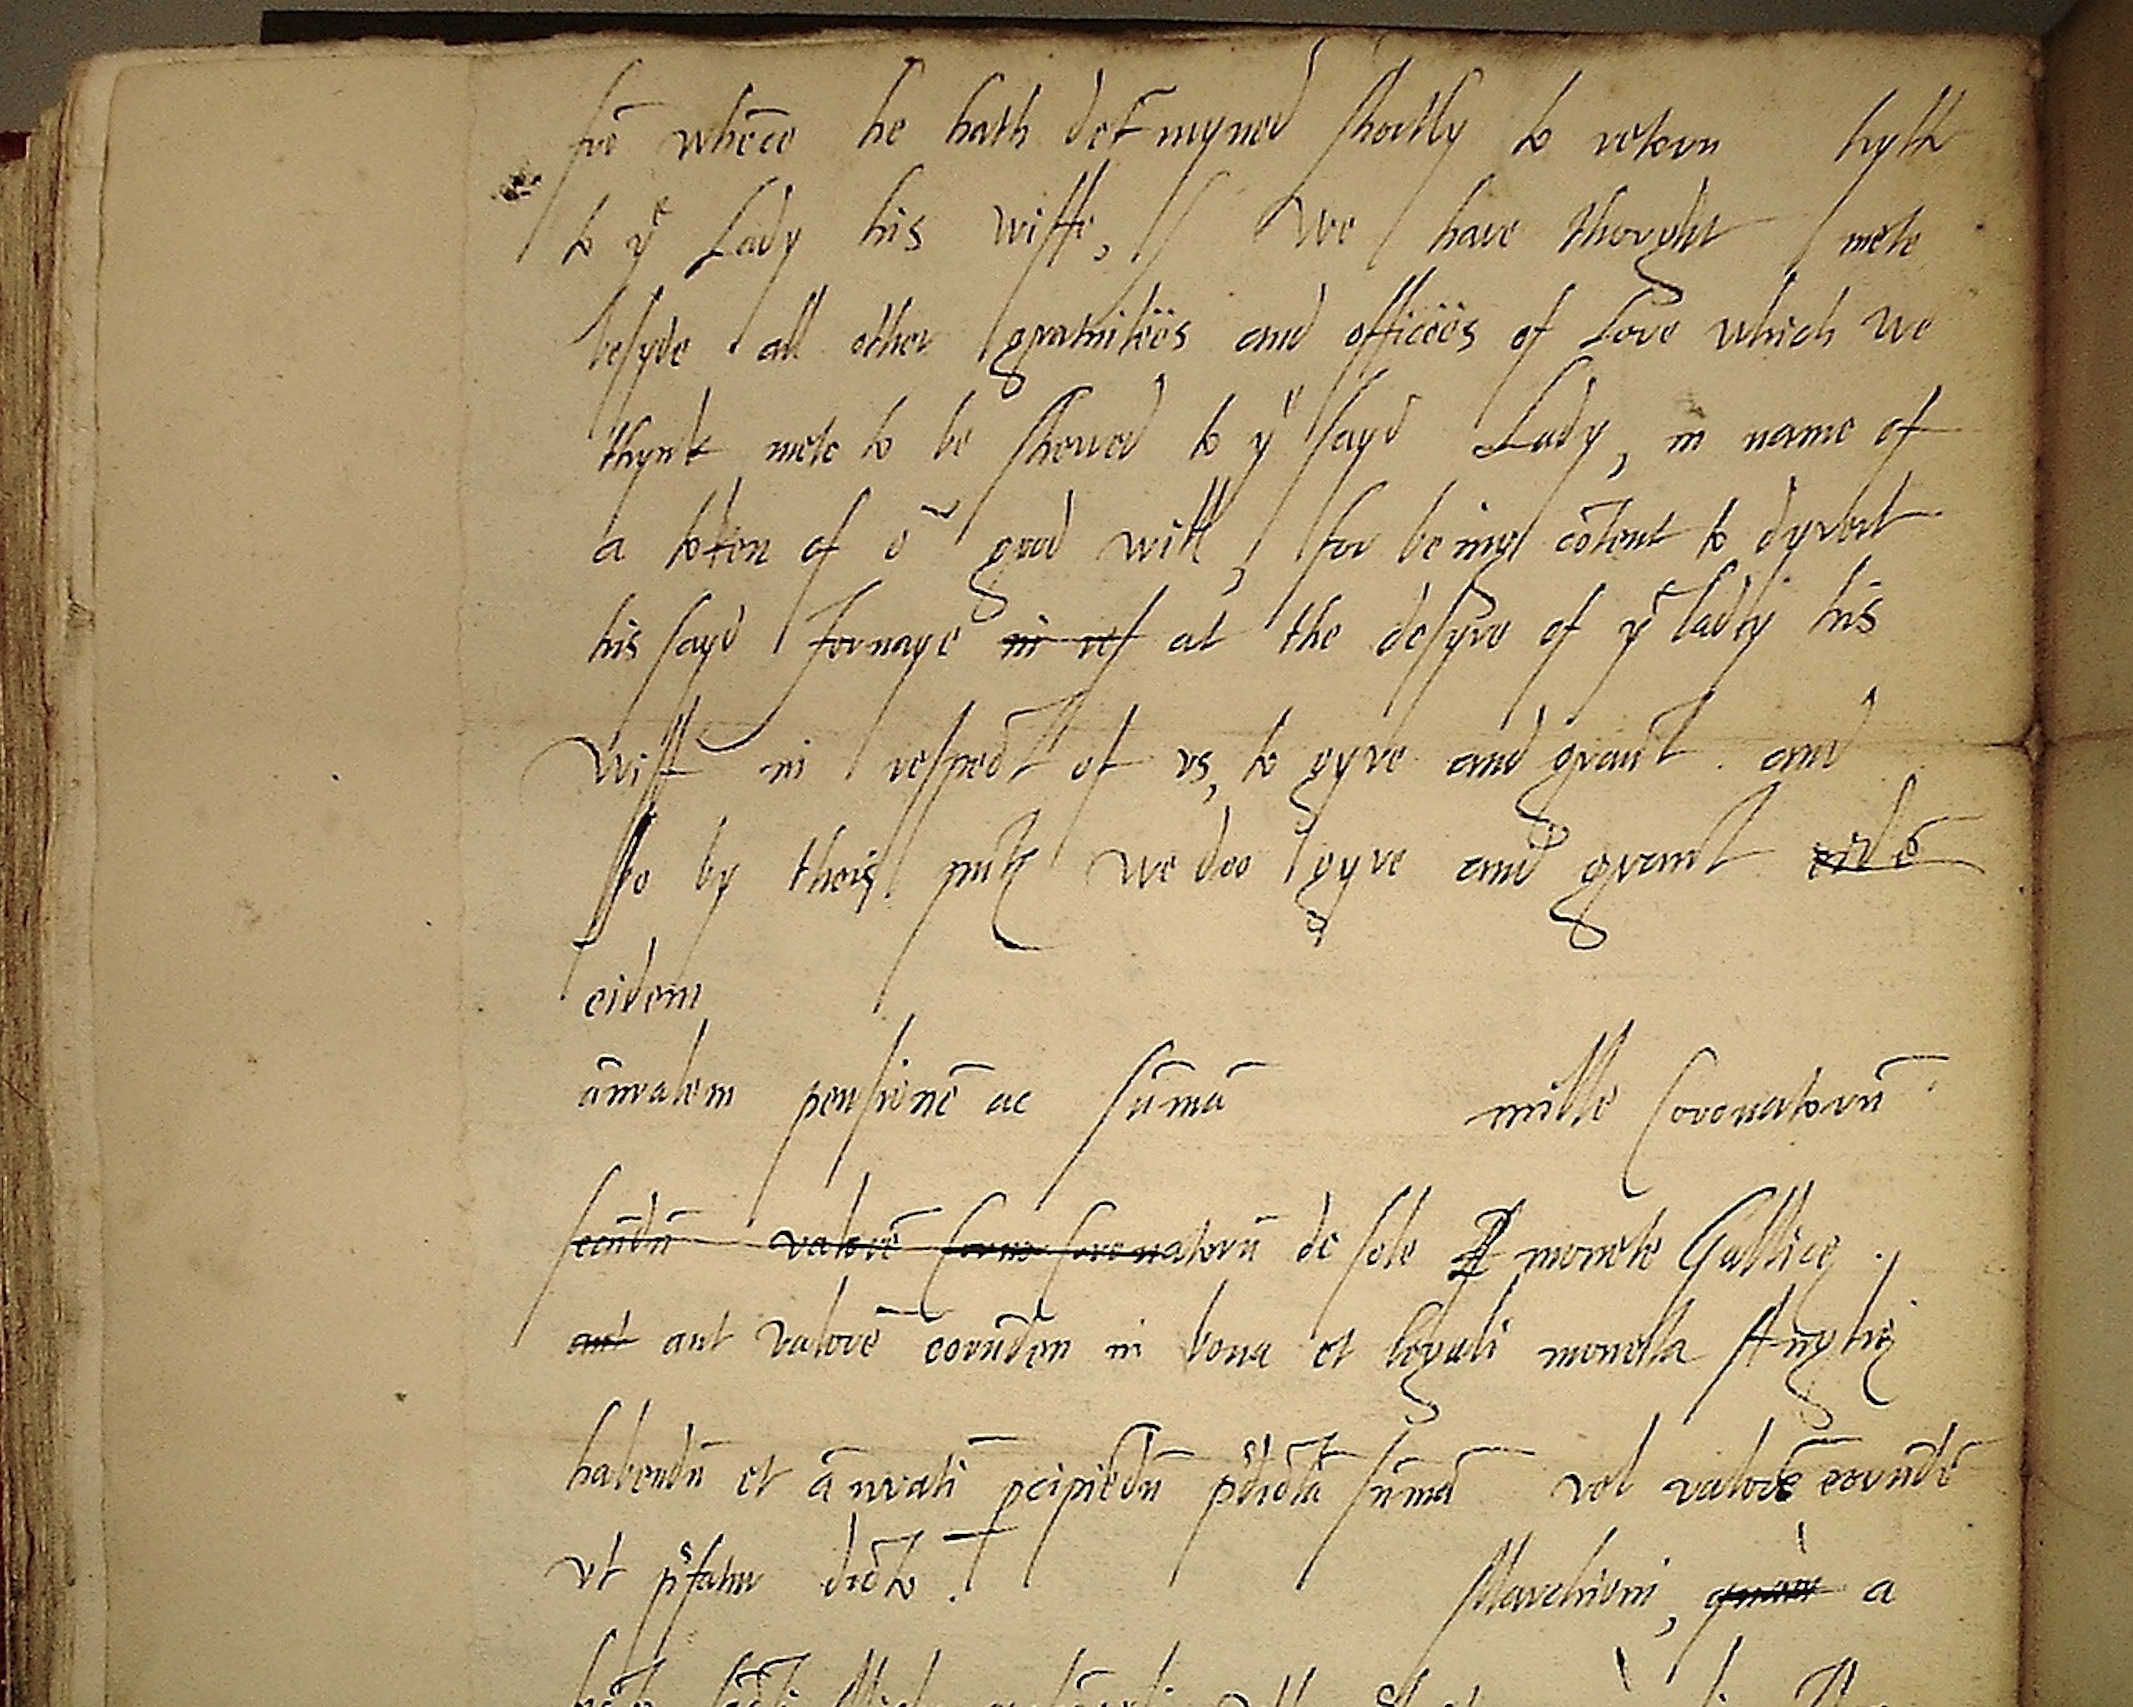 frō whēce he hath det̄myned shortly to retorn hyther
to yᵉ Lady his wiffe, We have thought mete
besyde all other gratuiteës and officeës of Love which we
thynk mete to be shewed to yᵉ sayd Lady, in name of
a token of oʳ good will, for being cōtent to dyvert
his sayd Jornaye in res at the desyre of yᵉ lady his
wiff in respect of vs, to gyve and graūt. and
so by theis pn̄tȝ we doo gyve and grant eidē
eidem
ānualem pensionē ac sūmā mille Coronatorū
secūdū valorē Coronatorū de sole monete Gallice.
aut aut valorē eorūdem in bona et legali moneta Anglię
habendū et ānuati pcipiēdū p̄dictā sūmā vel valorē eorūdē
vt p̄fatur dicto. Marchioni, a